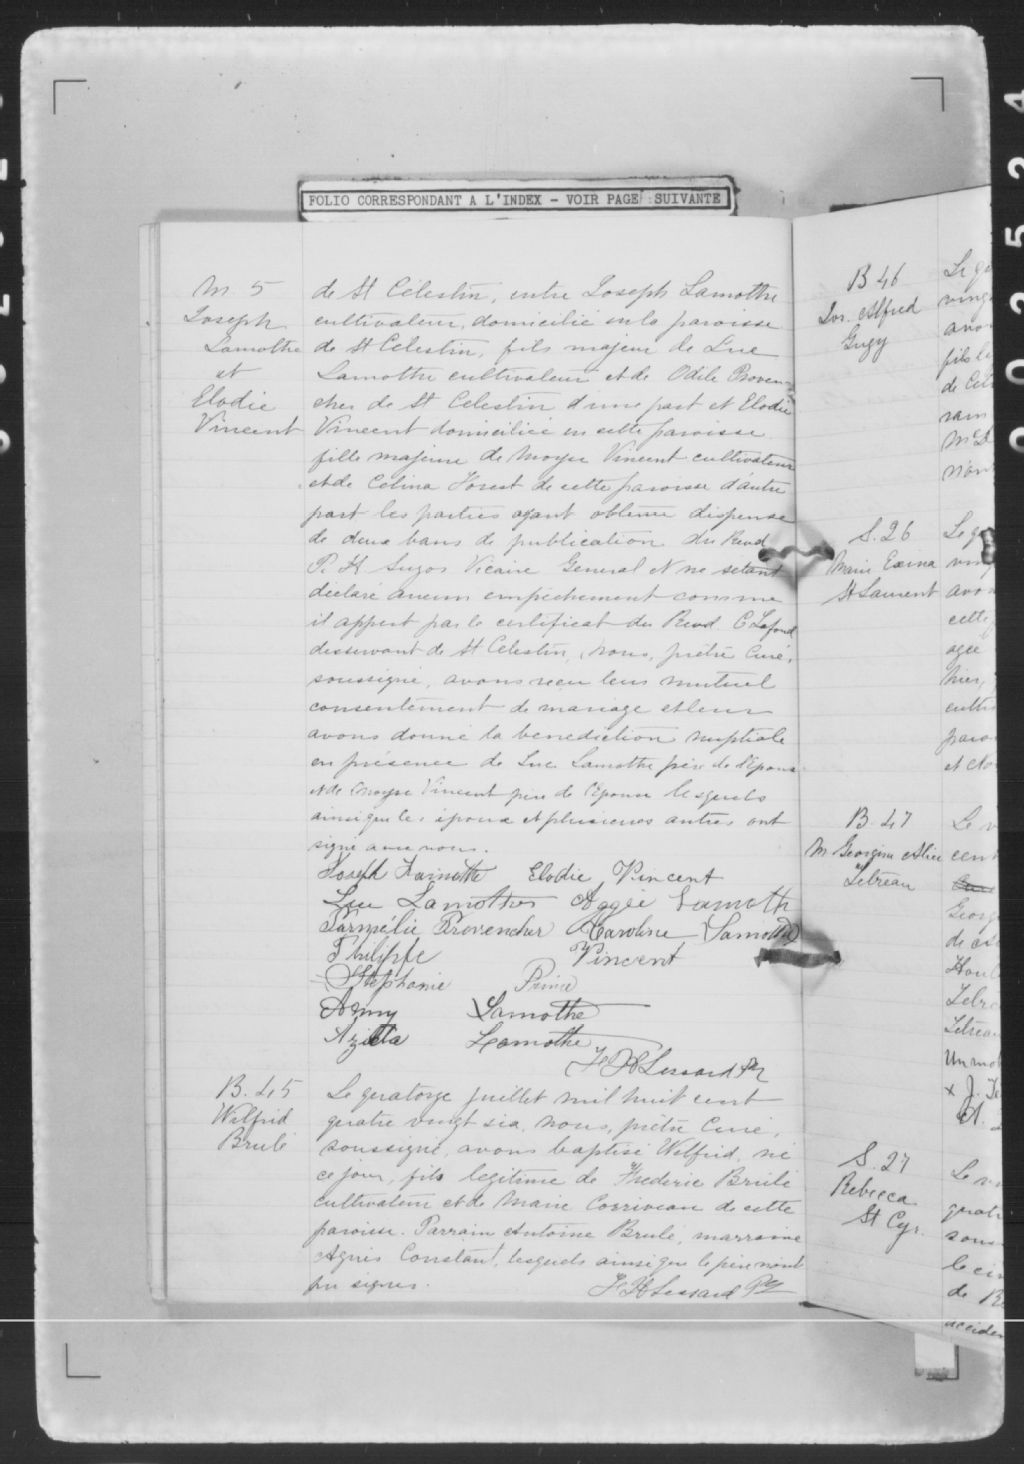 FOLIO CORRESPONDANT A L'INDEX - VOIR PAGE SUIVANTE
M. 5
Joseph
Lamothe
et
Elodie
Vincent
de St Célestin, entre Joseph Lamothe
cultivateur, domicilié en la paroisse
de St Celestin, fils majeur de Luc
Lamothe cultivateur et de Odile Proven-
cher de St Celestin d'une part et Elodie
Vincent domiciliée en cette paroisse
fille majeure de Moyse Vincent cultivateur
et de Celina Forest de cette paroisse d'autre
part les parties ayant obtenu dispense
de deux bans de publication du Revd
P. H. Suzor Vicaire General et ne setant
déclaré aucun empêchement comme
il appert par le certificat du Revd C Lafond
desservant de St Celestin, nous, prêtre Curé,
soussigné, avons reçu leur mutuel
consentement de mariage et leur
avons donné la bénédiction nuptiale
en présence de Luc Lamothe père de l'époux
et de Moyse Vincent père de l'épouse lesquels
ainsi que les époux et plusieurs autres ont
signé avec nous.
Joseph Lamothe Elodie Vincent
Luc Lamothe Aggée Lamoth
Parmélie Provencher Caroline Lamothe
Philippe Vincent
Stephanie Prince
Anny Lamothe
Azilda Lamothe
F H Lessard Ptr
B. 45
Wilfrid
Brulé
Le quatorze juillet mil huit cent
quatre vingt six, nous, prêtre Curé,
soussigné, avons baptisé Wilfrid, né
ce jour, fils legitime de Frederic Brulé
cultivateur et de Marie Corriveau de cette
paroisse. Parrain Antoine Brulé, marraine
Agnès Constant, lesquels ainsi que le père n'ont
pu signer.
F H Lessard Ptr
B 46
Jos. Alfred
Guay
S. 26
Marie Exina
St Laurent
B. 47
M Georgina Alice
Letreau
S. 27
Rebecca
St Cyr.
fils le
de
cette
agée
hier,
de